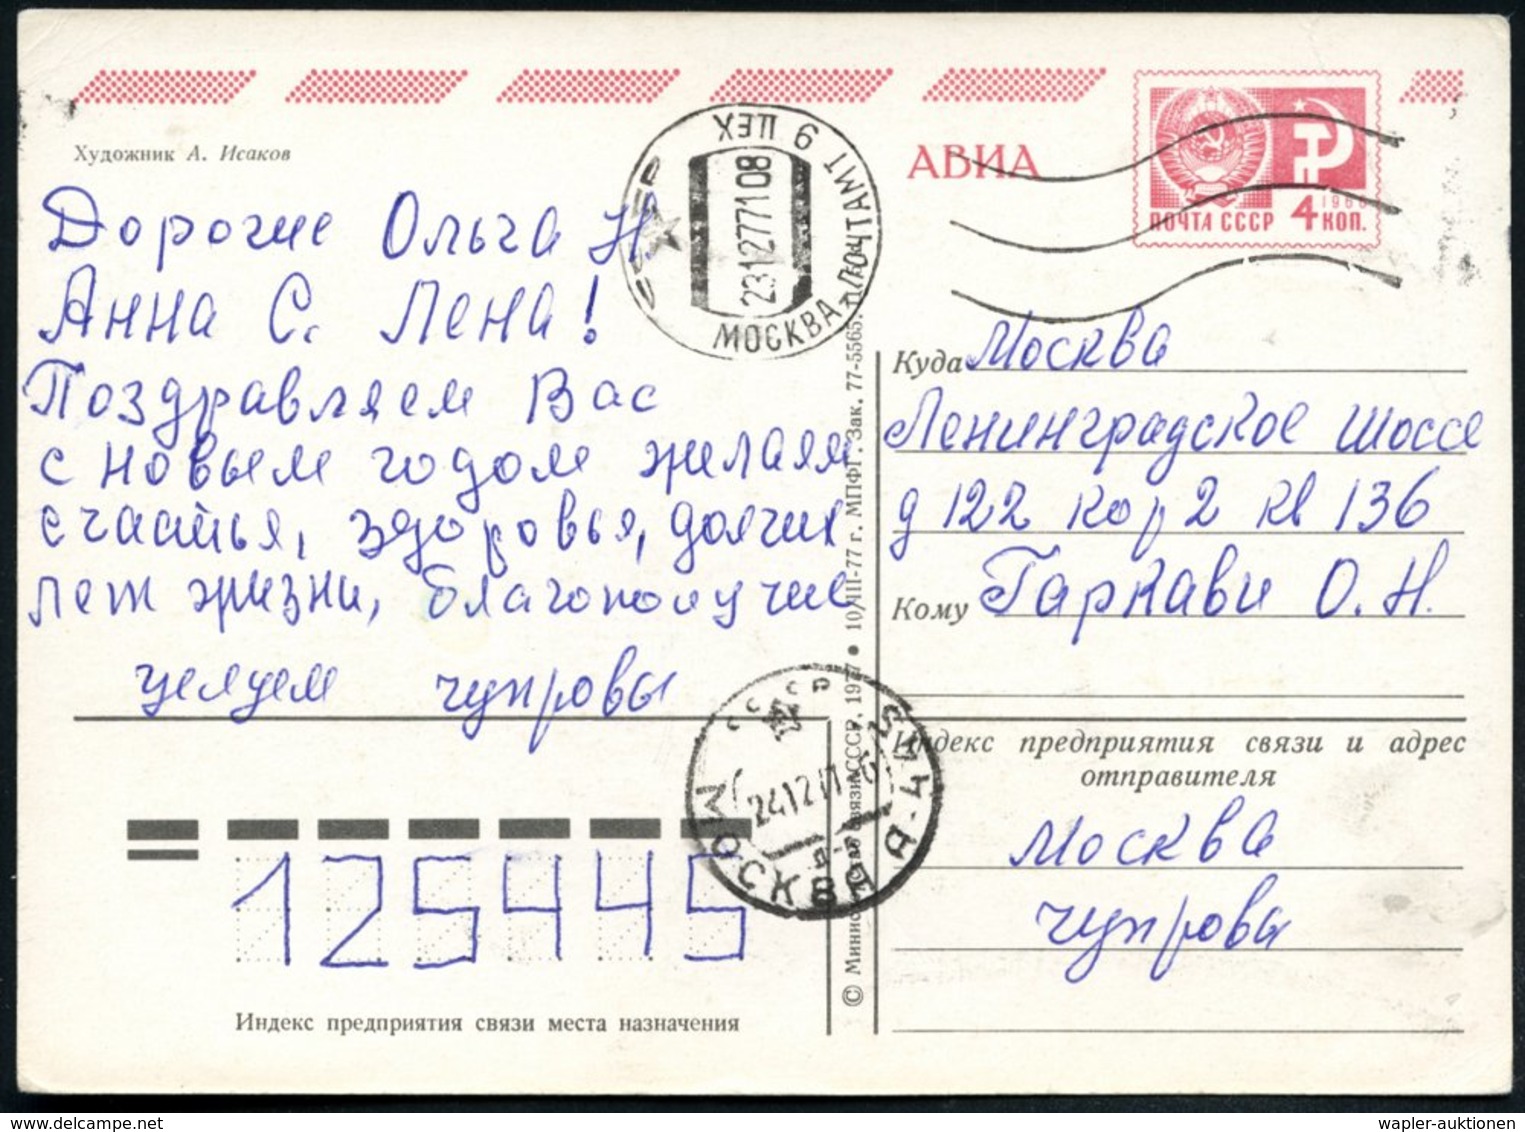 Художник А. Исаков
АВИА
ПОЧТА СССР 4 КОП.
1966
МОСКВА ПОЧТАМТ 9 ЦЕХ
23127708
Дорогие Ольга Н.
Анна С. Лена!
Поздравляем Вас
с новым годом желаем
счастья, здоровья, долгих
лет жизни, благополучие
целуем Чупровы
Куда Москва
Ленинградское шоссе
д 122 кор 2 кв 136
Кому Гаркави О. Н.
Индекс предприятия связи и адрес
отправителя
Москва
Чупрова
СССР
МОСКВА А-445
241277
125445
Индекс предприятия связи места назначения
СССР, 1977 • 10/III-77 г. МПФГ. Зак. 77-5565.
wapler-auktionen